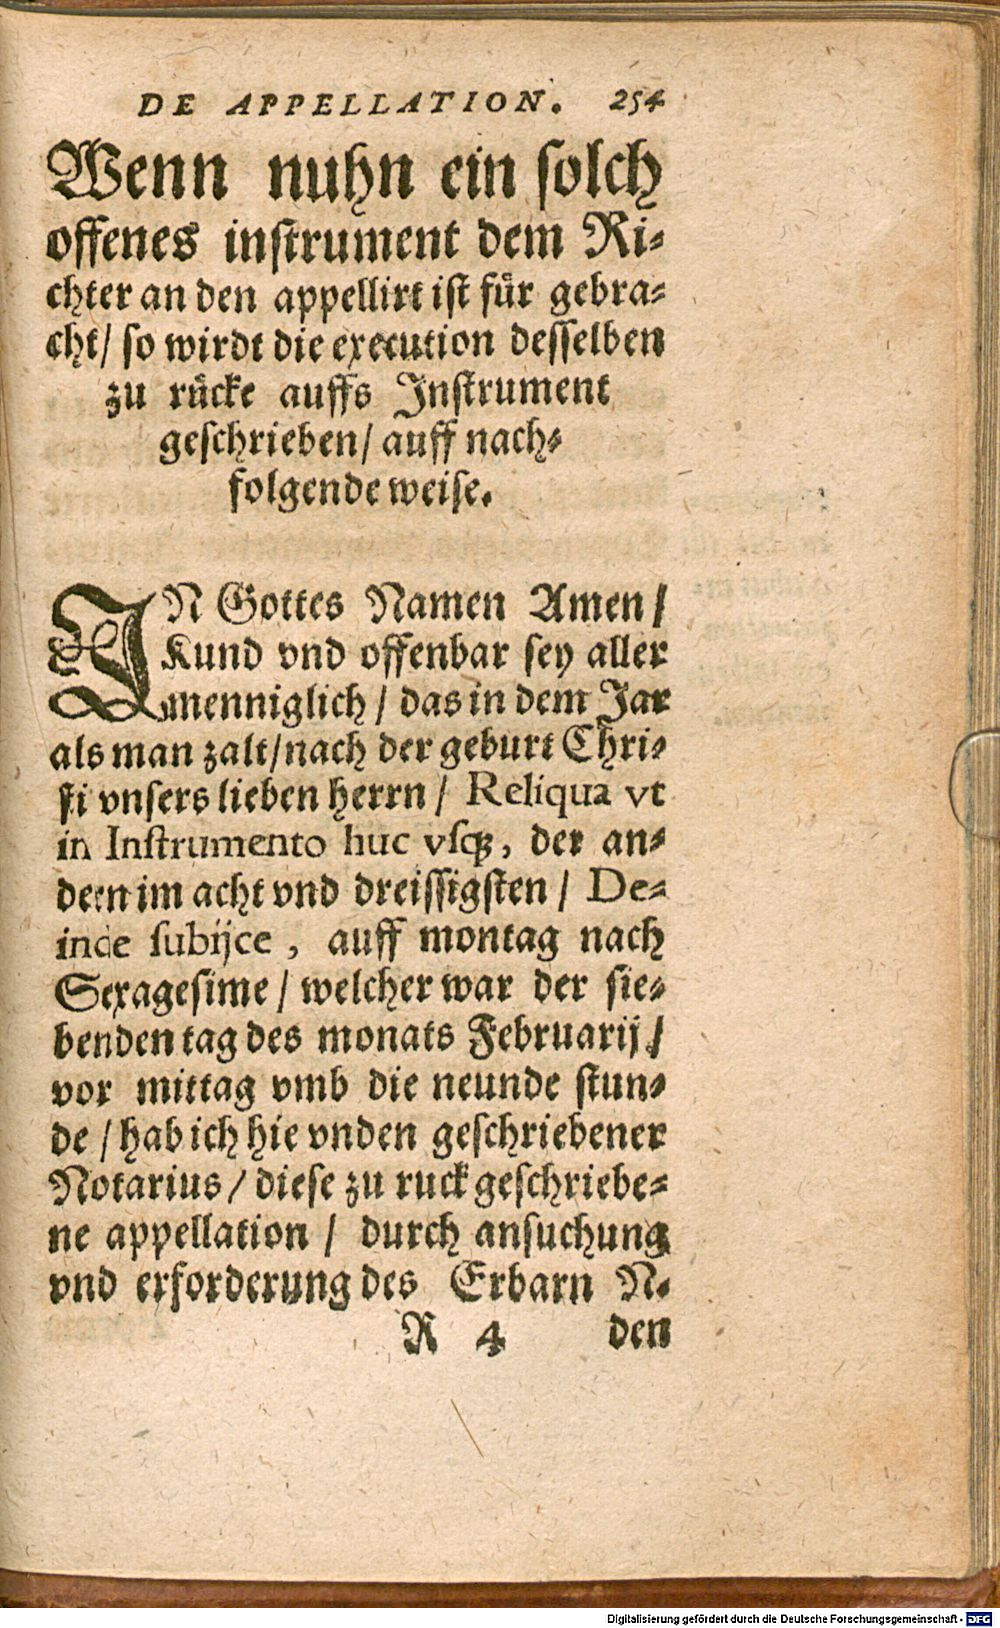 DE APPELLATION. 254
Wenn nuhn ein ſolch
offenes inſtrument dem Ri⸗
chter an den appellirt iſt für gebra⸗
cht/ ſo wirdt die execution desſelben
zu rücke auffs Inſtrument
geſchrieben/ auff nach⸗
folgende weiſe.
IN Gottes Namen Amen/
Kund vnd offenbar ſey aller
menniglich/ das in dem Jar
als man zalt/nach der geburt Chri⸗
ſti vnſers lieben herrn/ Reliqua vt
in Inſtrumento huc vſqꝫ, der an⸗
dern im acht vnd dreiſſigſten/ De-
inde ſubijce, auff montag nach
Sexageſime/ welcher war der ſie⸗
benden tag des monats Februarij/
vor mittag vmb die neunde ſtun⸗
de/ hab ich hie vnden geſchriebener
Notarius/ dieſe zu ruck geſchriebe⸗
ne appellation/ durch anſuchung
vnd erforderung des Erbarn N.
R 4 den
Digitalisierung gefördert durch die Deutsche Forschungsgemeinschaft - DFG